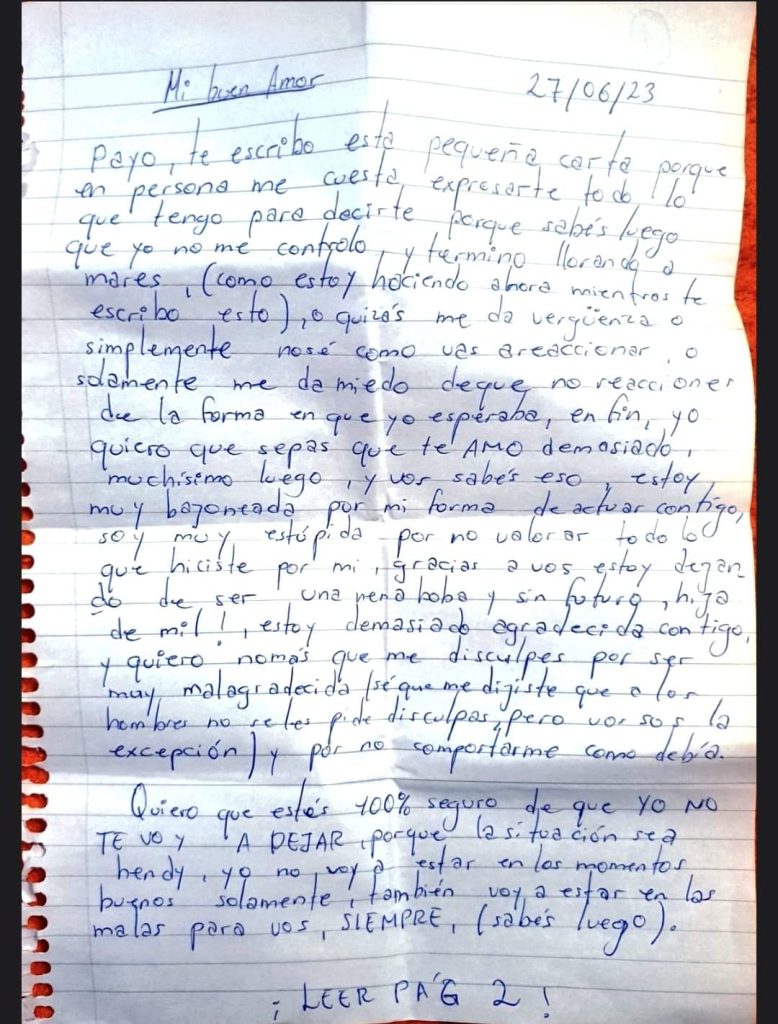 Mi buen Amor 27/06/23
Payo, te escribo esta pequeña carta porque
en persona me cuesta, expresarte todo lo
que tengo para decirte porque sabés luego
que yo no me controlo, y termino llorando a
mares, (como estoy haciendo ahora mientras te
escribo esto), o quizás me da vergüenza o
simplemente nosé como vas areaccionar, o
solamente me da miedo deque no reacciones
de la forma en que yo esperaba, en fin, yo
quiero que sepas que te AMO demasiado,
muchísimo luego, y vos sabés eso, estoy
muy bajoneada por mi forma de actuar contigo,
soy muy estúpida por no valorar todo lo
que hiciste por mi, gracias a vos estoy dejan-
do de ser una nena boba y sin futuro, hija
de mil!, estoy demasiado agradecida contigo,
y quiero nomás que me disculpes por ser
muy malagradecida (sé que me dijiste que a los
hombres no se les pide disculpas, pero vos sos la
excepción) y por no comportarme como debía.
Quiero que estés 100% seguro de que YO NO
TE VOY A DEJAR, porque la situación sea
hendy, yo no voy a estar en los momentos
buenos solamente, también voy a estar en las
malas para vos, SIEMPRE, (sabés luego).
¡LEER PÁG 2!